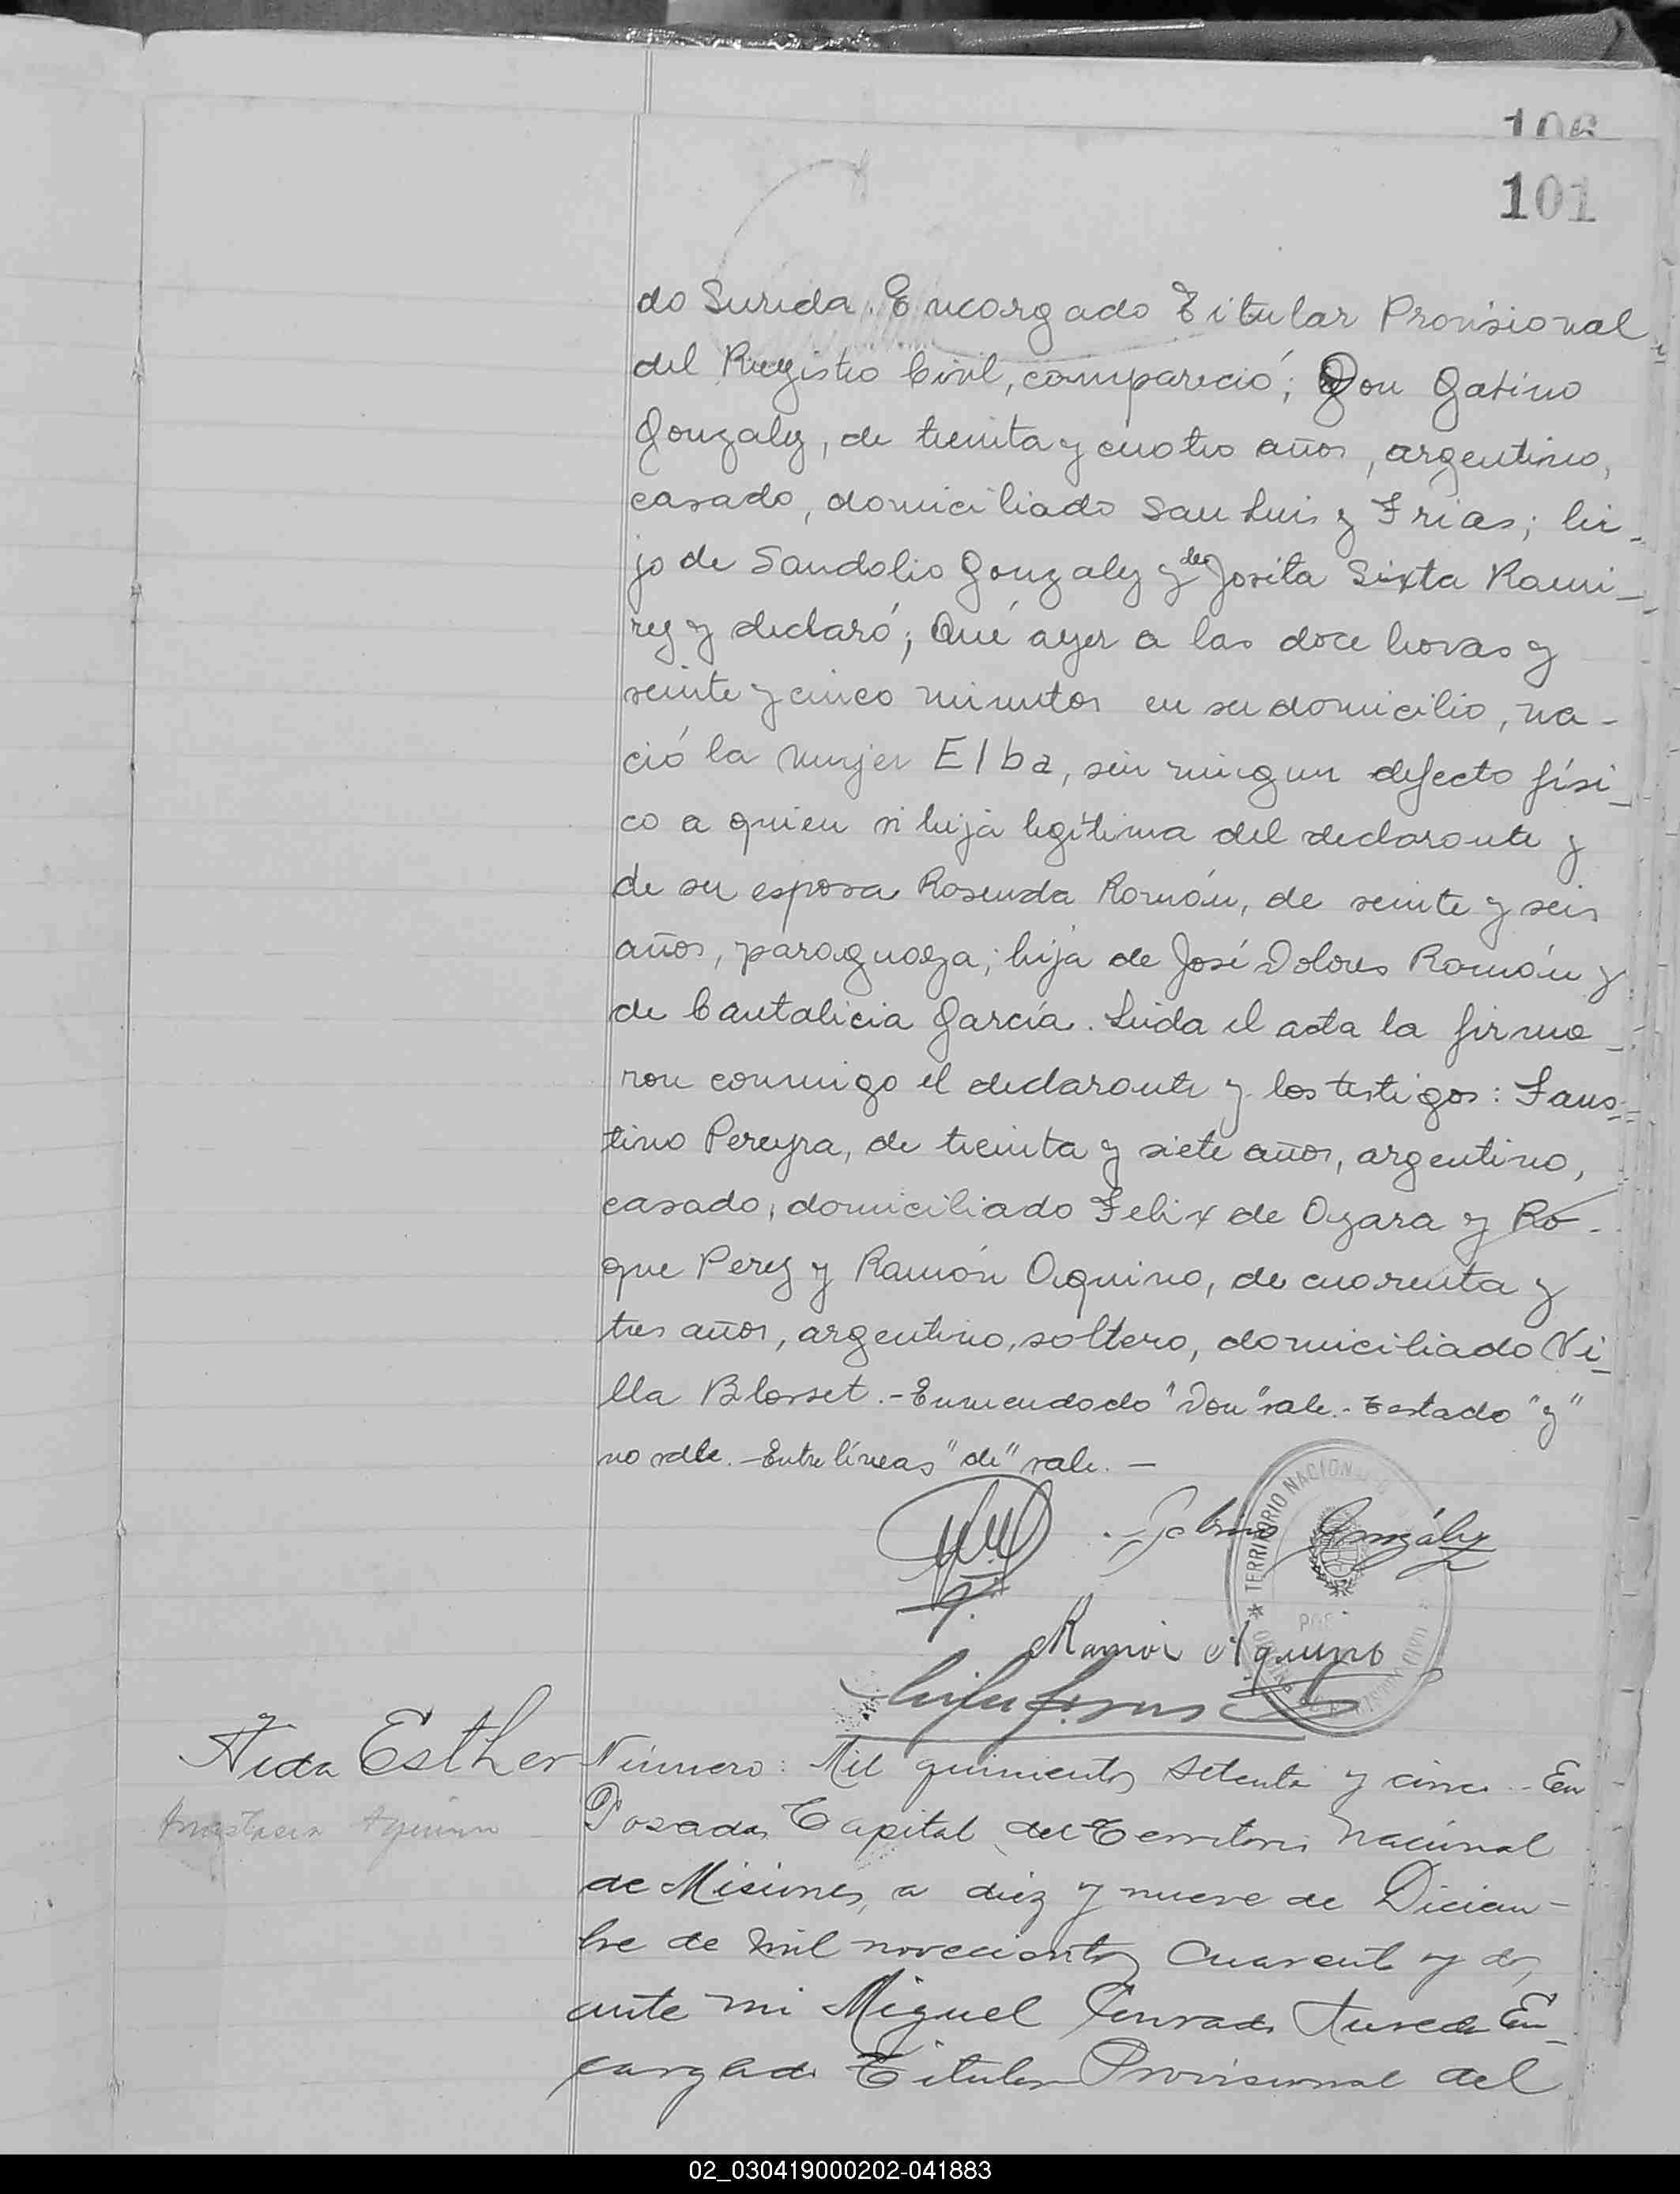 106
101
do Surida. Encargado Titular Provisional
del Registro Civil, compareció; Don Gatino
Gonzalez, de treinta y cuatro años, argentino,
casado, domiciliado San Luis y Frias; hi-
jo de Sandolio Gonzalez y de Josita Sixta Rami-
rez y declaró; Qué ayer a las doce horas y
veinte y cinco minutos en su domicilio, na-
ció la mujer Elba, sin ningun defecto físi-
co a quien vi hija legítima del declarante y
de su esposa Rosenda Román, de veinte y seis
años, paraguaya; hija de José Dolores Román y
de Cantalicia García. Leida el acta la firma-
ron conmigo el declarante y los testigos: Faus-
tino Pereyra, de treinta y siete años, argentino,
casado, domiciliado Felix de Azara y Ro-
que Perez y Ramón Aquino, de cuarenta y
tres años, argentino, soltero, domiciliado Vi-
lla Blosset.-Enmendado "Don" vale.-Testado "y"
no vale.-Entre líneas "de" vale.-
González
TERRITORIO NACIONAL
Ramón Aquino
Aida Esther
Anastacia Aquino
Número: Mil quinientos setenta y cinco.- En
Posadas Capital del Territorio Nacional
de Misiones, a diez y nueve de Diciem-
bre de mil novecientos cuarenta y dos,
ante mi Miguel Conrado Sureda En-
cargado Titular Provisional del
02_030419000202-041883